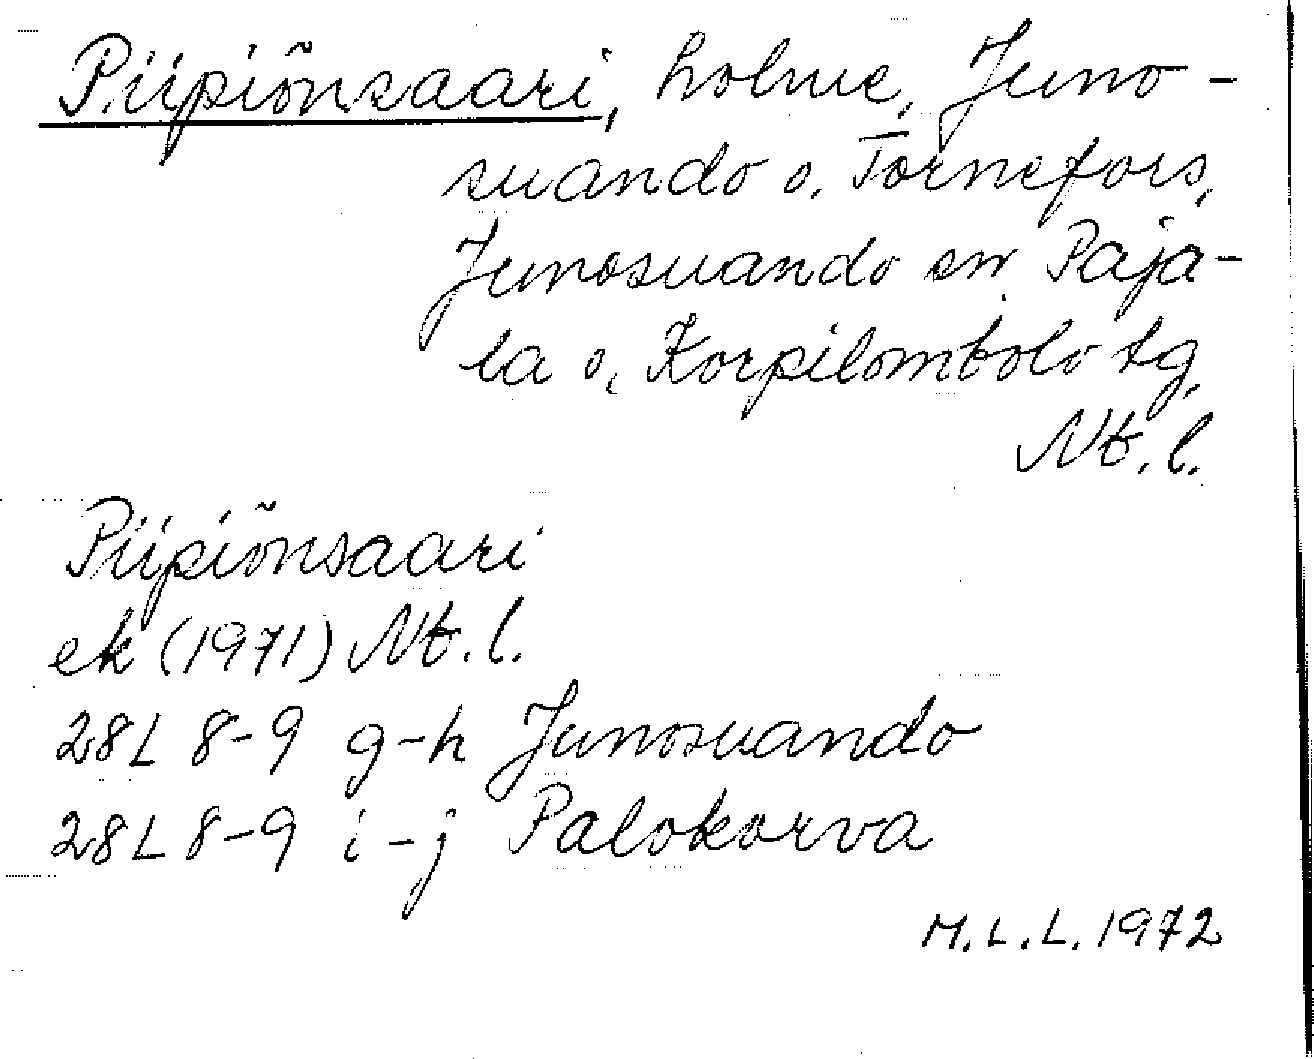 Piipiõnsaari, holme, Juno-
suando o. Tornefors,
Junosuando sn Paja-
la o. Korpilombolo tg,
Nb. l.
Piipiõnsaari
ek (1971) Nb. l.
28L 8-9 g-h Junosuando
28L 8-9 i-j Palokorva
M.L.L. 1972